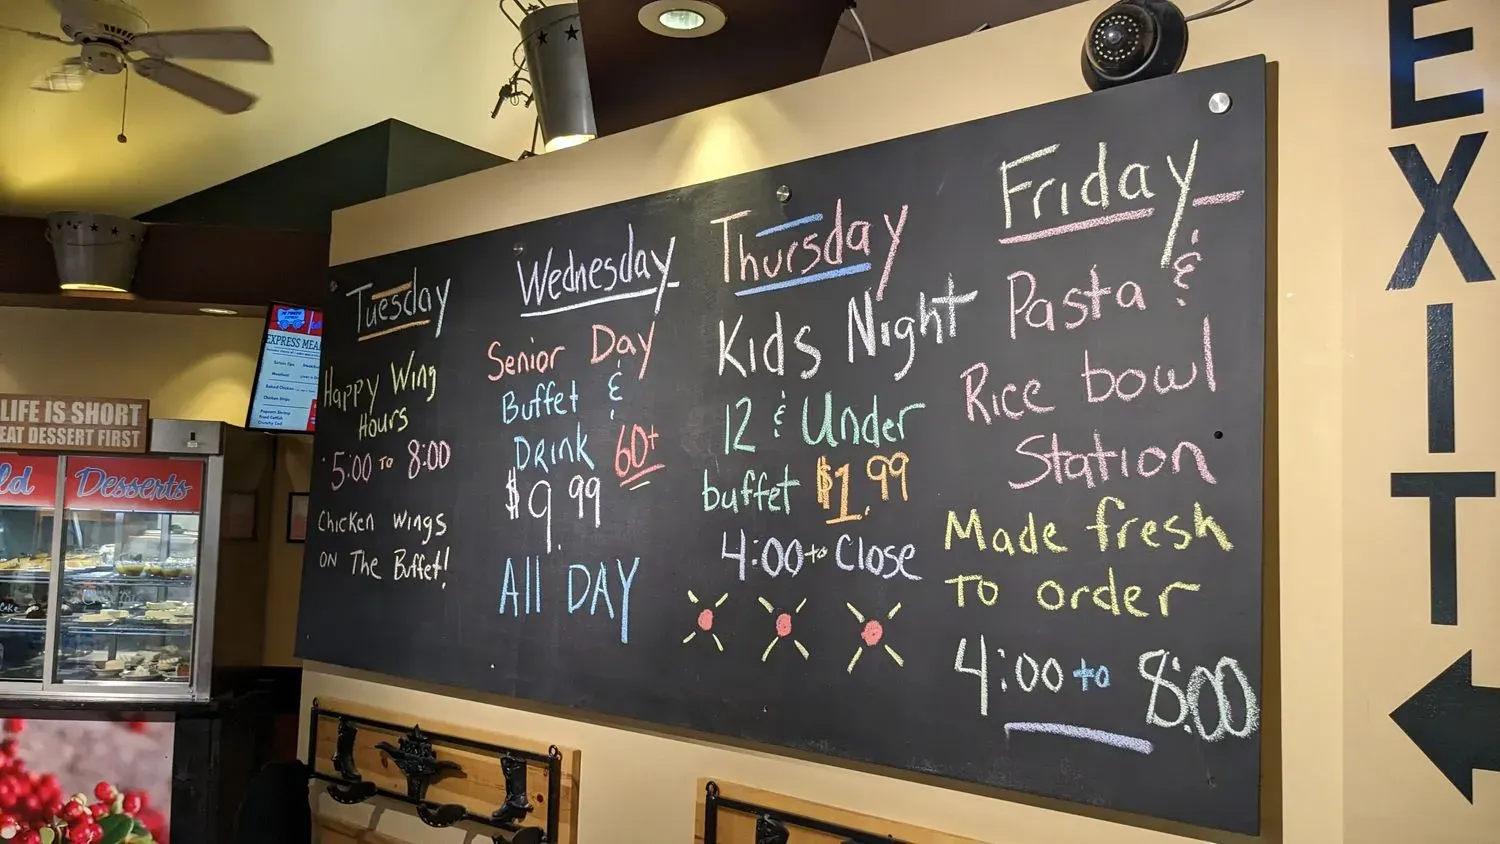 Tuesday
Happy Wing
Hours
5:00 to 8:00
Chicken wings
on The Buffet!
Wednesday
Senior Day
Buffet &
Drink 60+
$9.99
All DAY
Thursday
Kids Night
12 & Under
buffet $1.99
4:00 to Close
Friday
Pasta &
Rice bowl
Station
Made fresh
To order
4:00 to 8:00
EXIT
EXPRESS MEA
LIFE IS SHORT
EAT DESSERT FIRST
ld
Desserts
Cake